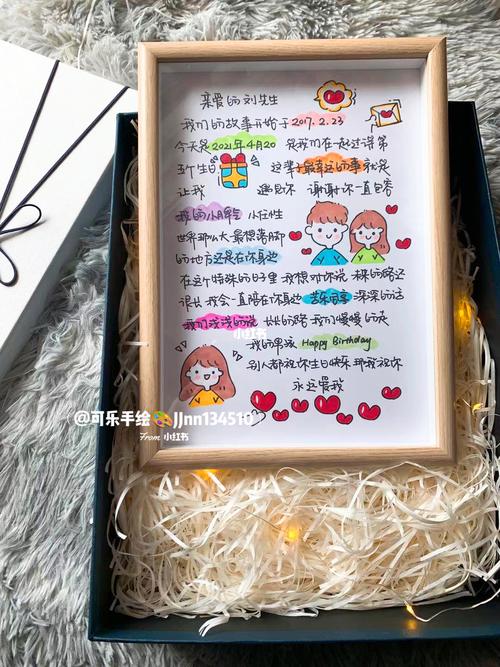 亲爱的刘先生
我们的故事开始于2017.2.23
今天是2021年4月20 是我们在一起过得第
五个生日 这辈子最幸运的事就是
让我 遇见你 谢谢你一直包容
我的小脾气 小任性
世界那么大最想落脚
的地方还是在你身边
在这个特殊的日子里我想对你说 未来的路还
很长我会一直陪在你身边 苦乐同享 深深的话
我们浅浅的说 长长的路我们慢慢的走
小红书
我的男孩 Happy Birthday
别人都祝你生日快乐 那我祝你
永远爱我
@可乐手绘🎨JJnn134510
From 小红书